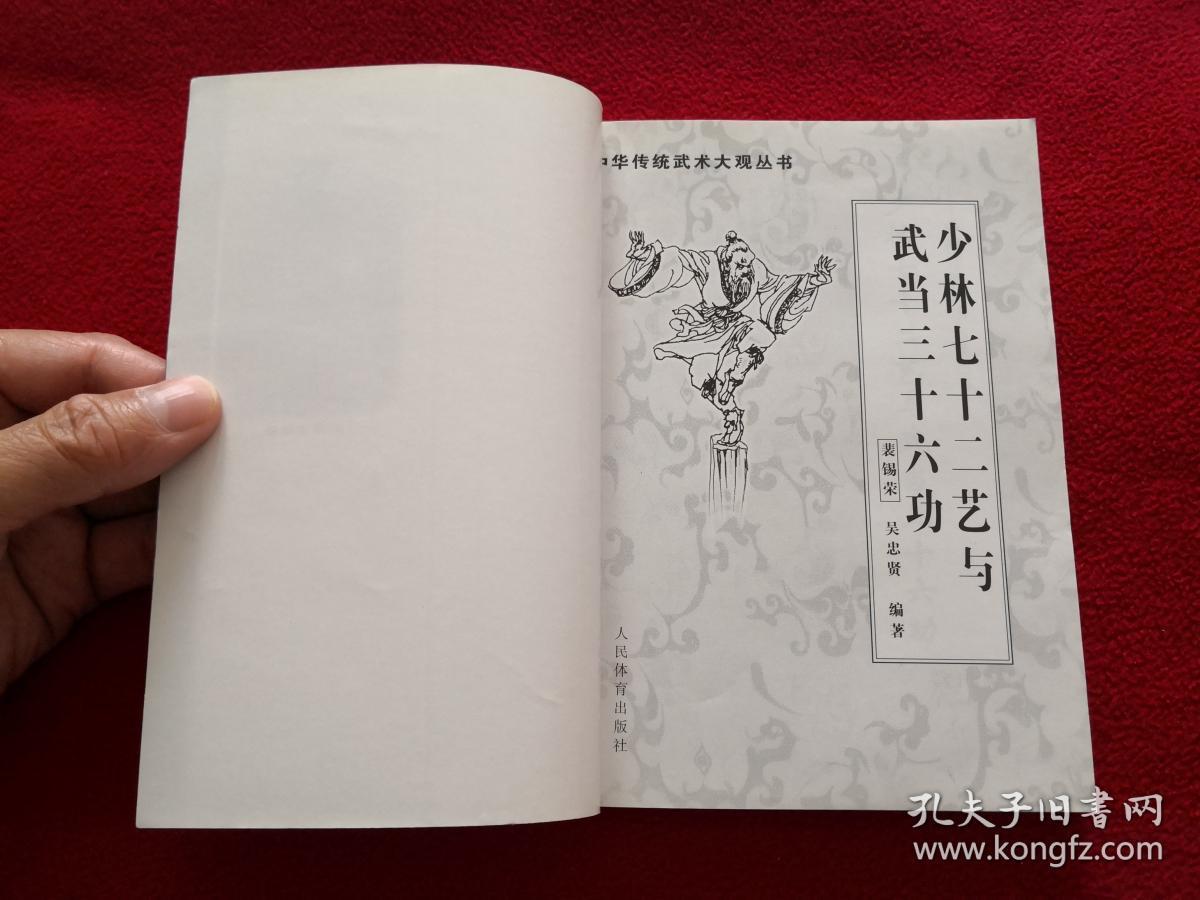 中华传统武术大观丛书
少林七十二艺与
武当三十六功
裴锡荣 吴忠贤 编著
人民体育出版社
孔夫子旧书网
www.kongfz.com